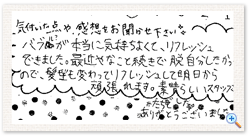 気付いた点や、感想をお聞かせ下さい
バブルが本当に気持ちよくて、リフレッシュ
できました。最近イヤなこと続きで脱自分したかった
ので、髪型も変わってリフレッシュして明日から
頑張れます。素晴らしいスタンス
ありがとうございました